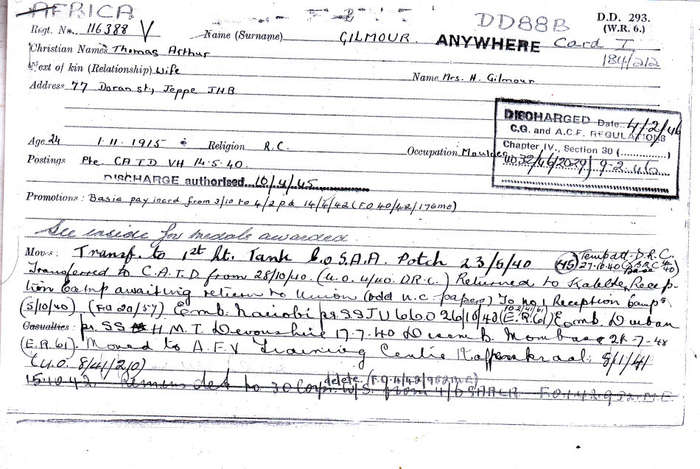 AFRICA
DD88B
D.D. 293.
(W.R. 6.)
Regt. No. 116388 V Name (Surname) GILMOUR. ANYWHERE Card I
184/2/2
Christian Names Thomas Arthur
Next of kin (Relationship) Wife Name Mrs. H. Gilmour
Address 77 Doran st, Jeppe JHB
DISCHARGED Date 4/2/46
C.G. and A.C.F. REGULATIONS
Chapter IV., Section 30 (............)
9-2-46
Age 24 1-11-1915 Religion R.C. Occupation Moulder
Postings Pte. C.A.T.D VH 14.5.40.
DISCHARGE authorised 10/4/45
Promotions: Basic pay incrd from 3/10 to 4/2 p.d. 14/6/42 (F.O 40/42/
See inside for medals awarded
Moves: Transf. to 1st Lt. Tank Co S.A.A. Potch 23/5/40 (45) Temp att D.R.C.
27.10.40
Transferred to C.A.T.D from 28/10/40. (U.O. 4/40 D.R.C.) Returned to Recep-
tion Camp awaiting return to Union (odd U.C. papers) To No 1 Reception Camp
(5/10/40) (F.O 20/57) Emb. Nairobi 26/10/40 (E.R. 61) Emb. Durban
Casualties: pr. SS H M T Devonshire 17-7-40 Disemb. Mombasa 21-7-40
(E.R. 61) Moved to A.F.V Training Centre Kaffirskraal 5/1/41
(U.O. 8/41/20)
15.10.42 delete